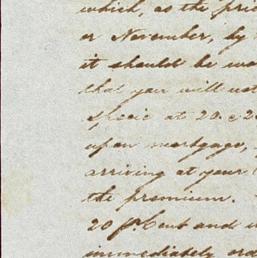 which, as the pri
or November, by
it should be wa
that you will not
specie at 20. a 2
upon mortgage,
arriving at your
the premium.
20 p Cent and
immediately ord